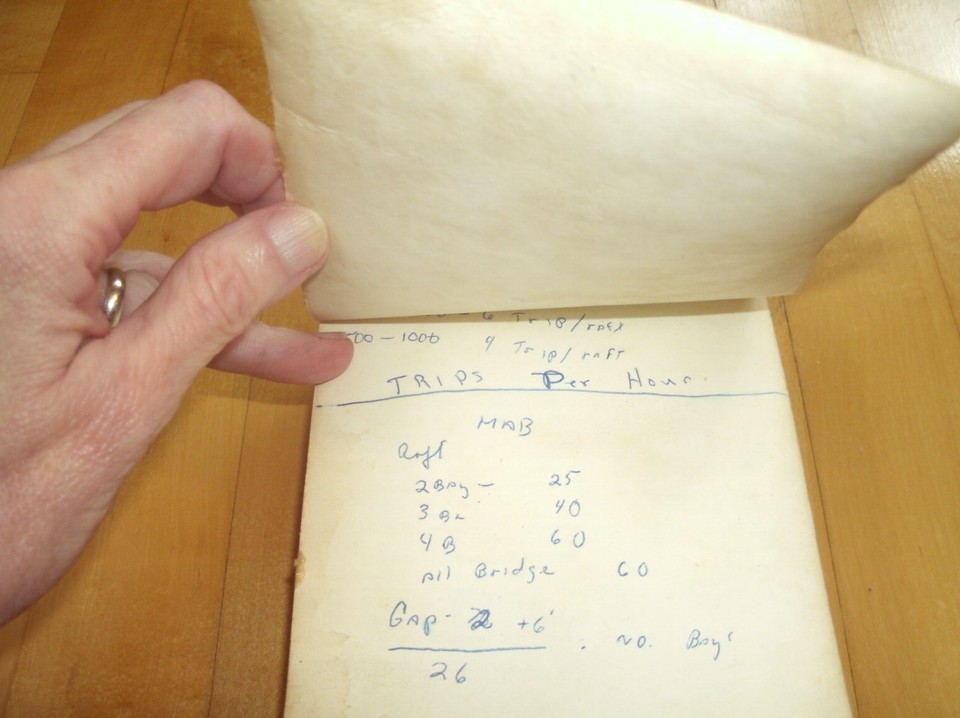 6 Trip/
500 - 1000 4 Trip/raft
TRIPS Per Hour
MAB
Raft
2 Bay - 25
3 Ba 40
4 B 60
All Bridge 60
Gap - 2 +6'
26 . no. Bay's